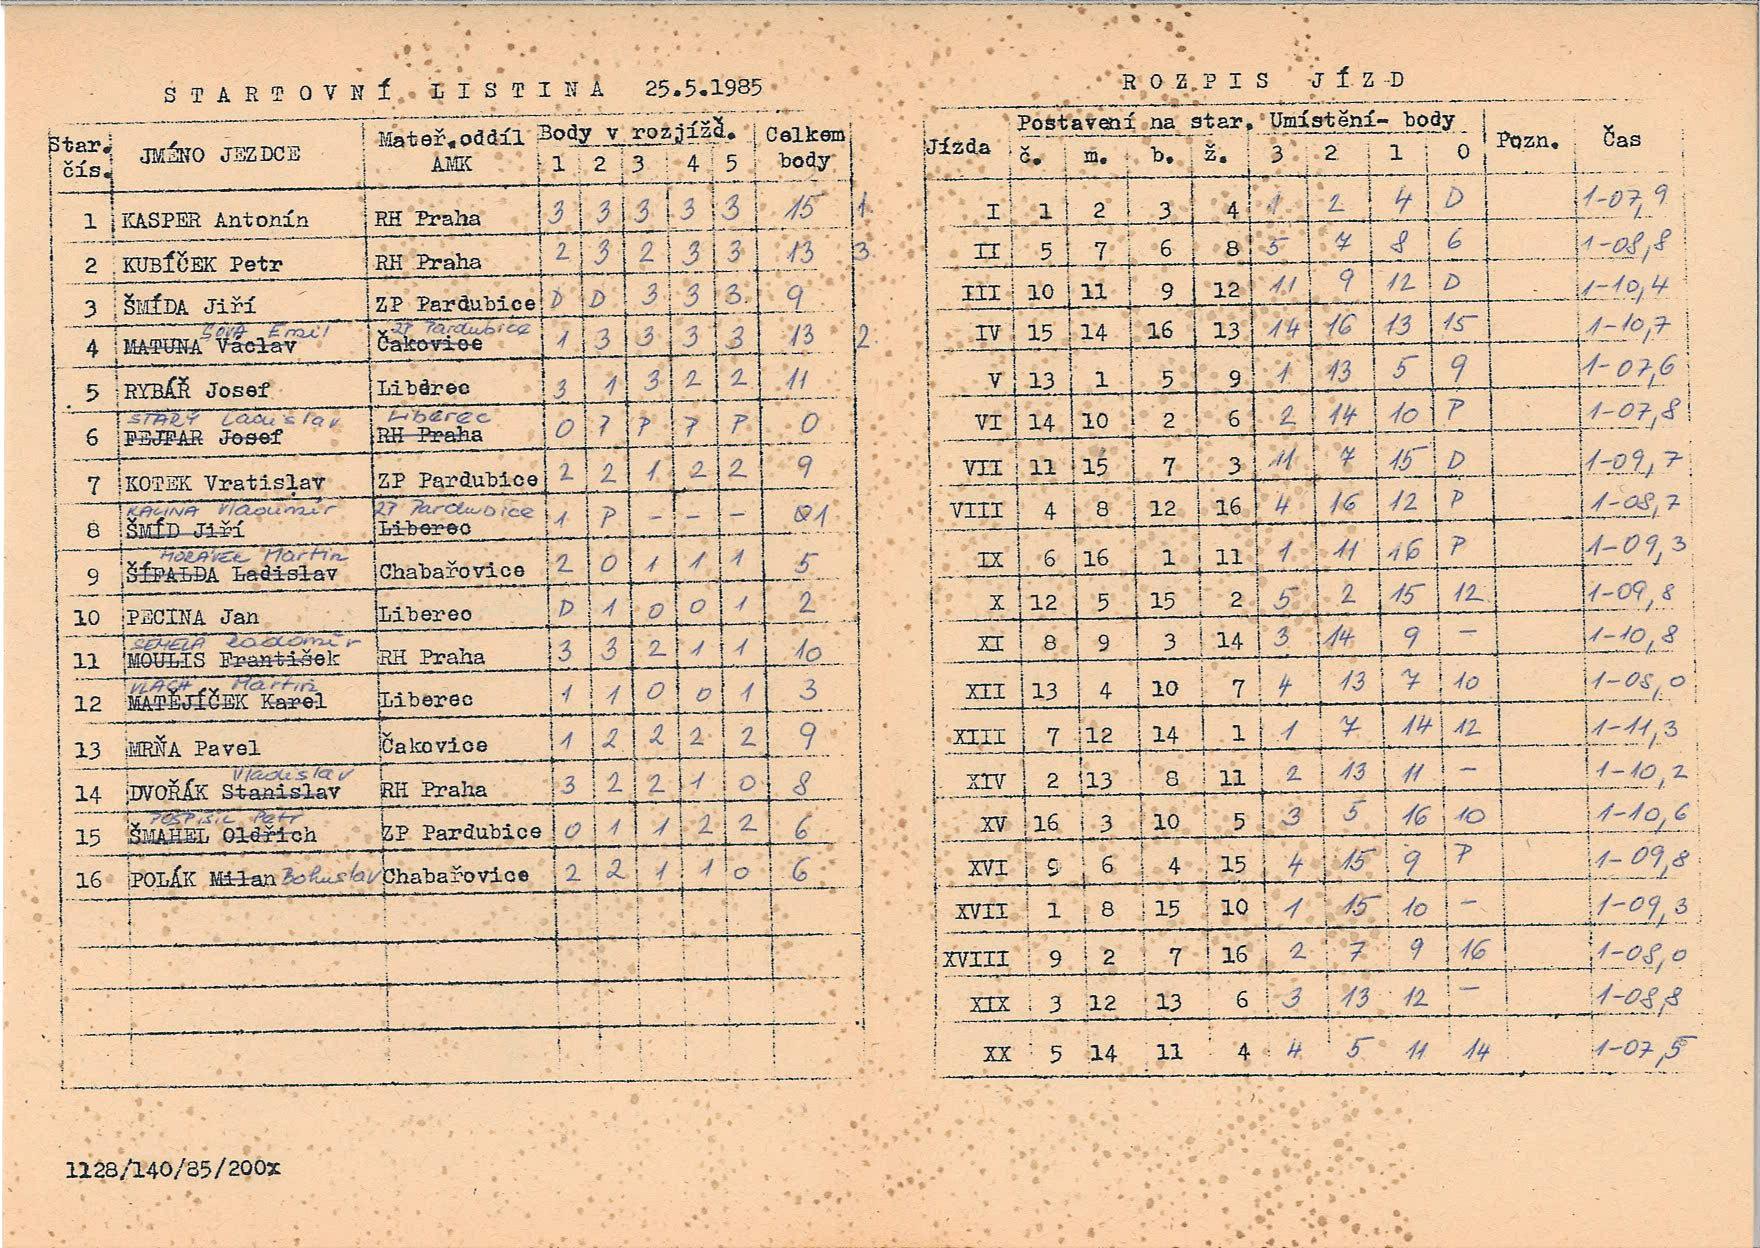 STARTOVNÍ LISTINA 25.5.1985
Star. čís. JMÉNO JEZDCE Mateř.oddíl AMK Body v rozjížď. 1 2 3 4 5 Celkem body
1 KASPER Antonín RH Praha 3 3 3 3 3 15 1
2 KUBÍČEK Petr RH Praha 2 3 2 3 3 13 3
3 ŠMÍDA Jiří ZP Pardubice D D 3 3 3 9
SOVA Emil ZP Pardubice
4 MATUNA Václav Čakovice 1 3 3 3 3 13 2
5 RYBÁŘ Josef Liberec 3 1 3 2 2 11
STARÝ Ladislav Liberec
6 FEJFAR Josef RH Praha 0 P P P P 0
7 KOTEK Vratislav ZP Pardubice 2 2 1 2 2 9
KALINA Vladimír ZP Pardubice
8 ŠMÍD Jiří Liberec 1 P - - - 1
MORAVEK Martin
9 ŠÍFALDA Ladislav Chabařovice 2 0 1 1 1 5
10 PECINA Jan Liberec D 1 0 0 1 2
SEMELA
11 MOULIS František RH Praha 3 3 2 1 1 10
VLACH Martin
12 MATĚJÍČEK Karel Liberec 1 1 0 0 1 3
13 MRŇA Pavel Čakovice 1 2 2 2 2 9
Vladislav
14 DVOŘÁK Stanislav RH Praha 3 2 2 1 0 8
POSPÍŠIL Petr
15 ŠMAHEL Oldřich ZP Pardubice 0 1 1 2 2 6
16 POLÁK Milan Bohuslav Chabařovice 2 2 1 1 0 6
1128/140/85/200x
ROZPIS JÍZD
Jízda Postavení na star. č. m. b. ž. Umístění- body 3 2 1 0 Pozn. Čas
I 1 2 3 4 1 2 4 D 1-07,9
II 5 7 6 8 5 7 8 6 1-08,8
III 10 11 9 12 11 9 12 D 1-10,4
IV 15 14 16 13 14 16 13 15 1-10,7
V 13 1 5 9 1 13 5 9 1-07,6
VI 14 10 2 6 2 14 10 P 1-07,8
VII 11 15 7 3 11 7 15 D 1-09,7
VIII 4 8 12 16 4 16 12 P 1-08,7
IX 6 16 1 11 1 11 16 P 1-09,3
X 12 5 15 2 5 2 15 12 1-09,8
XI 8 9 3 14 3 14 9 - 1-10,8
XII 13 4 10 7 4 13 7 10 1-08,0
XIII 7 12 14 1 1 7 14 12 1-11,3
XIV 2 13 8 11 2 13 11 - 1-10,2
XV 16 3 10 5 3 5 16 10 1-10,6
XVI 9 6 4 15 4 15 9 P 1-09,8
XVII 1 8 15 10 1 15 10 - 1-09,3
XVIII 9 2 7 16 2 7 9 16 1-08,0
XIX 3 12 13 6 3 13 12 - 1-08,8
XX 5 14 11 4 4 5 11 14 1-07,5